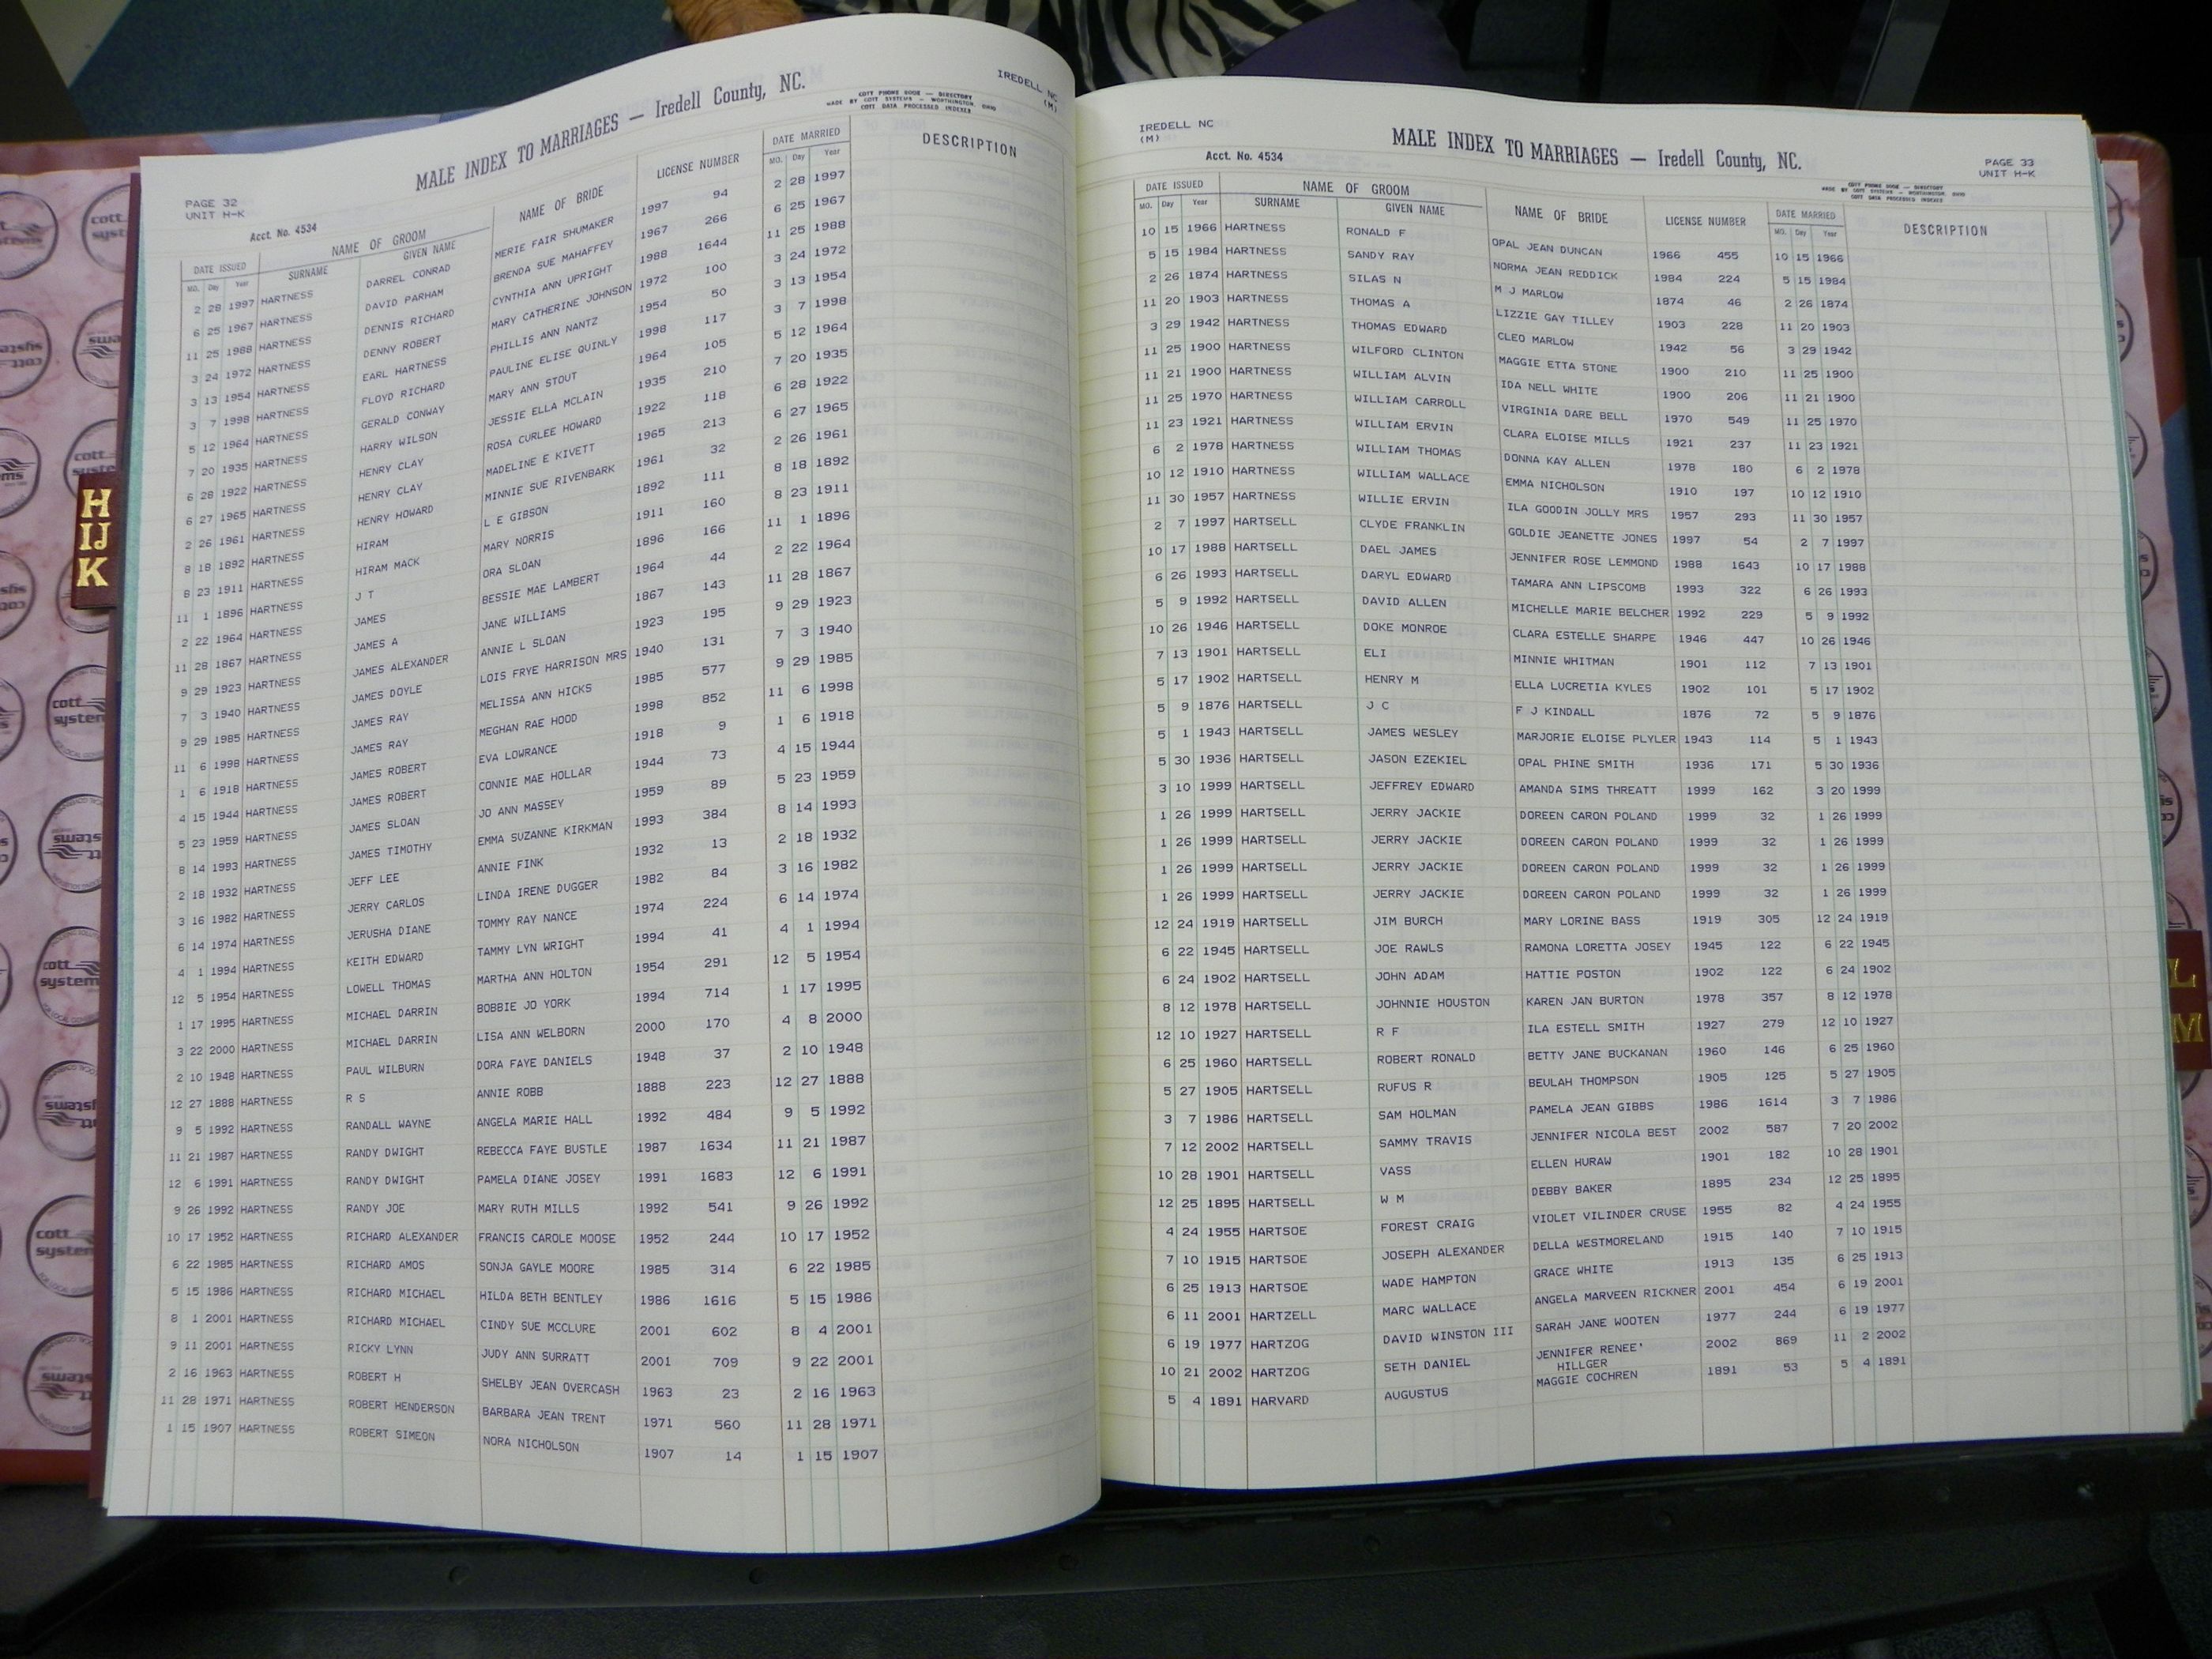 IREDELL NC
(M)
MALE INDEX TO MARRIAGES — Iredell County, NC.
COTT PHONE BOOK — DIRECTORY
MADE BY COTT SYSTEMS — WORTHINGTON, OHIO
COTT DATA PROCESSED INDEXES
PAGE 32
UNIT H-K
Acct. No. 4534
DATE ISSUED NAME OF GROOM NAME OF BRIDE LICENSE NUMBER DATE MARRIED DESCRIPTION
MO. Day Year SURNAME GIVEN NAME MO. Day Year
2 28 1997 HARTNESS DARREL CONRAD MERIE FAIR SHUMAKER 1997 94 2 28 1997
6 25 1967 HARTNESS DAVID PARHAM BRENDA SUE MAHAFFEY 1967 266 6 25 1967
11 25 1988 HARTNESS DENNIS RICHARD CYNTHIA ANN UPRIGHT 1988 1644 11 25 1988
3 24 1972 HARTNESS DENNY ROBERT MARY CATHERINE JOHNSON 1972 100 3 24 1972
3 13 1954 HARTNESS EARL HARTNESS PHILLIS ANN NANTZ 1954 50 3 13 1954
3 7 1998 HARTNESS FLOYD RICHARD PAULINE ELISE QUINLY 1998 117 3 7 1998
5 12 1964 HARTNESS GERALD CONWAY MARY ANN STOUT 1964 105 5 12 1964
7 20 1935 HARTNESS HARRY WILSON JESSIE ELLA MCLAIN 1935 210 7 20 1935
6 28 1922 HARTNESS HENRY CLAY ROSA CURLEE HOWARD 1922 118 6 28 1922
6 27 1965 HARTNESS HENRY CLAY MADELINE E KIVETT 1965 213 6 27 1965
2 26 1961 HARTNESS HENRY HOWARD MINNIE SUE RIVENBARK 1961 32 2 26 1961
8 18 1892 HARTNESS HIRAM L E GIBSON 1892 111 8 18 1892
8 23 1911 HARTNESS HIRAM MACK MARY NORRIS 1911 160 8 23 1911
11 1 1896 HARTNESS J T ORA SLOAN 1896 166 11 1 1896
2 22 1964 HARTNESS JAMES BESSIE MAE LAMBERT 1964 44 2 22 1964
11 28 1867 HARTNESS JAMES A JANE WILLIAMS 1867 143 11 28 1867
9 29 1923 HARTNESS JAMES ALEXANDER ANNIE L SLOAN 1923 195 9 29 1923
7 3 1940 HARTNESS JAMES DOYLE LOIS FRYE HARRISON MRS 1940 131 7 3 1940
9 29 1985 HARTNESS JAMES RAY MELISSA ANN HICKS 1985 577 9 29 1985
11 6 1998 HARTNESS JAMES RAY MEGHAN RAE HOOD 1998 852 11 6 1998
1 6 1918 HARTNESS JAMES ROBERT EVA LOWRANCE 1918 9 1 6 1918
4 15 1944 HARTNESS JAMES ROBERT CONNIE MAE HOLLAR 1944 73 4 15 1944
5 23 1959 HARTNESS JAMES SLOAN JO ANN MASSEY 1959 89 5 23 1959
8 14 1993 HARTNESS JAMES TIMOTHY EMMA SUZANNE KIRKMAN 1993 384 8 14 1993
2 18 1932 HARTNESS JEFF LEE ANNIE FINK 1932 13 2 18 1932
3 16 1982 HARTNESS JERRY CARLOS LINDA IRENE DUGGER 1982 84 3 16 1982
6 14 1974 HARTNESS JERUSHA DIANE TOMMY RAY NANCE 1974 224 6 14 1974
4 1 1994 HARTNESS KEITH EDWARD TAMMY LYN WRIGHT 1994 41 4 1 1994
12 5 1954 HARTNESS LOWELL THOMAS MARTHA ANN HOLTON 1954 291 12 5 1954
1 17 1995 HARTNESS MICHAEL DARRIN BOBBIE JO YORK 1994 714 1 17 1995
3 22 2000 HARTNESS MICHAEL DARRIN LISA ANN WELBORN 2000 170 4 8 2000
2 10 1948 HARTNESS PAUL WILBURN DORA FAYE DANIELS 1948 37 2 10 1948
12 27 1888 HARTNESS R S ANNIE ROBB 1888 223 12 27 1888
9 5 1992 HARTNESS RANDALL WAYNE ANGELA MARIE HALL 1992 484 9 5 1992
11 21 1987 HARTNESS RANDY DWIGHT REBECCA FAYE BUSTLE 1987 1634 11 21 1987
12 6 1991 HARTNESS RANDY DWIGHT PAMELA DIANE JOSEY 1991 1683 12 6 1991
9 26 1992 HARTNESS RANDY JOE MARY RUTH MILLS 1992 541 9 26 1992
10 17 1952 HARTNESS RICHARD ALEXANDER FRANCIS CAROLE MOOSE 1952 244 10 17 1952
6 22 1985 HARTNESS RICHARD AMOS SONJA GAYLE MOORE 1985 314 6 22 1985
5 15 1986 HARTNESS RICHARD MICHAEL HILDA BETH BENTLEY 1986 1616 5 15 1986
8 1 2001 HARTNESS RICHARD MICHAEL CINDY SUE MCCLURE 2001 602 8 4 2001
9 11 2001 HARTNESS RICKY LYNN JUDY ANN SURRATT 2001 709 9 22 2001
2 16 1963 HARTNESS ROBERT H SHELBY JEAN OVERCASH 1963 23 2 16 1963
11 28 1971 HARTNESS ROBERT HENDERSON BARBARA JEAN TRENT 1971 560 11 28 1971
1 15 1907 HARTNESS ROBERT SIMEON NORA NICHOLSON 1907 14 1 15 1907
IREDELL NC
(M)
MALE INDEX TO MARRIAGES — Iredell County, NC.
PAGE 33
UNIT H-K
Acct. No. 4534
COTT PHONE BOOK — DIRECTORY
MADE BY COTT SYSTEMS — WORTHINGTON, OHIO
COTT DATA PROCESSED INDEXES
DATE ISSUED NAME OF GROOM NAME OF BRIDE LICENSE NUMBER DATE MARRIED DESCRIPTION
MO. Day Year SURNAME GIVEN NAME MO. Day Year
10 15 1966 HARTNESS RONALD F OPAL JEAN DUNCAN 1966 455 10 15 1966
5 15 1984 HARTNESS SANDY RAY NORMA JEAN REDDICK 1984 224 5 15 1984
2 26 1874 HARTNESS SILAS N M J MARLOW 1874 46 2 26 1874
11 20 1903 HARTNESS THOMAS A LIZZIE GAY TILLEY 1903 228 11 20 1903
3 29 1942 HARTNESS THOMAS EDWARD CLEO MARLOW 1942 56 3 29 1942
11 25 1900 HARTNESS WILFORD CLINTON MAGGIE ETTA STONE 1900 210 11 25 1900
11 21 1900 HARTNESS WILLIAM ALVIN IDA NELL WHITE 1900 206 11 21 1900
11 25 1970 HARTNESS WILLIAM CARROLL VIRGINIA DARE BELL 1970 549 11 25 1970
11 23 1921 HARTNESS WILLIAM ERVIN CLARA ELOISE MILLS 1921 237 11 23 1921
6 2 1978 HARTNESS WILLIAM THOMAS DONNA KAY ALLEN 1978 180 6 2 1978
10 12 1910 HARTNESS WILLIAM WALLACE EMMA NICHOLSON 1910 197 10 12 1910
11 30 1957 HARTNESS WILLIE ERVIN ILA GOODIN JOLLY MRS 1957 293 11 30 1957
2 7 1997 HARTSELL CLYDE FRANKLIN GOLDIE JEANETTE JONES 1997 54 2 7 1997
10 17 1988 HARTSELL DAEL JAMES JENNIFER ROSE LEMMOND 1988 1643 10 17 1988
6 26 1993 HARTSELL DARYL EDWARD TAMARA ANN LIPSCOMB 1993 322 6 26 1993
5 9 1992 HARTSELL DAVID ALLEN MICHELLE MARIE BELCHER 1992 229 5 9 1992
10 26 1946 HARTSELL DOKE MONROE CLARA ESTELLE SHARPE 1946 447 10 26 1946
7 13 1901 HARTSELL ELI MINNIE WHITMAN 1901 112 7 13 1901
5 17 1902 HARTSELL HENRY M ELLA LUCRETIA KYLES 1902 101 5 17 1902
5 9 1876 HARTSELL J C F J KINDALL 1876 72 5 9 1876
5 1 1943 HARTSELL JAMES WESLEY MARJORIE ELOISE PLYLER 1943 114 5 1 1943
5 30 1936 HARTSELL JASON EZEKIEL OPAL PHINE SMITH 1936 171 5 30 1936
3 10 1999 HARTSELL JEFFREY EDWARD AMANDA SIMS THREATT 1999 162 3 20 1999
1 26 1999 HARTSELL JERRY JACKIE DOREEN CARON POLAND 1999 32 1 26 1999
1 26 1999 HARTSELL JERRY JACKIE DOREEN CARON POLAND 1999 32 1 26 1999
1 26 1999 HARTSELL JERRY JACKIE DOREEN CARON POLAND 1999 32 1 26 1999
1 26 1999 HARTSELL JERRY JACKIE DOREEN CARON POLAND 1999 32 1 26 1999
12 24 1919 HARTSELL JIM BURCH MARY LORINE BASS 1919 305 12 24 1919
6 22 1945 HARTSELL JOE RAWLS RAMONA LORETTA JOSEY 1945 122 6 22 1945
6 24 1902 HARTSELL JOHN ADAM HATTIE POSTON 1902 122 6 24 1902
8 12 1978 HARTSELL JOHNNIE HOUSTON KAREN JAN BURTON 1978 357 8 12 1978
12 10 1927 HARTSELL R F ILA ESTELL SMITH 1927 279 12 10 1927
6 25 1960 HARTSELL ROBERT RONALD BETTY JANE BUCKANAN 1960 146 6 25 1960
5 27 1905 HARTSELL RUFUS R BEULAH THOMPSON 1905 125 5 27 1905
3 7 1986 HARTSELL SAM HOLMAN PAMELA JEAN GIBBS 1986 1614 3 7 1986
7 12 2002 HARTSELL SAMMY TRAVIS JENNIFER NICOLA BEST 2002 587 7 20 2002
10 28 1901 HARTSELL VASS ELLEN HURAW 1901 182 10 28 1901
12 25 1895 HARTSELL W M DEBBY BAKER 1895 234 12 25 1895
4 24 1955 HARTSOE FOREST CRAIG VIOLET VILINDER CRUSE 1955 82 4 24 1955
7 10 1915 HARTSOE JOSEPH ALEXANDER DELLA WESTMORELAND 1915 140 7 10 1915
6 25 1913 HARTSOE WADE HAMPTON GRACE WHITE 1913 135 6 25 1913
6 11 2001 HARTZELL MARC WALLACE ANGELA MARVEEN RICKNER 2001 454 6 19 2001
6 19 1977 HARTZOG DAVID WINSTON III SARAH JANE WOOTEN 1977 244 6 19 1977
10 21 2002 HARTZOG SETH DANIEL JENNIFER RENEE' 2002 869 11 2 2002
HILLGER
5 4 1891 HARVARD AUGUSTUS MAGGIE COCHREN 1891 53 5 4 1891
H
IJ
K
L
M
cott
systems